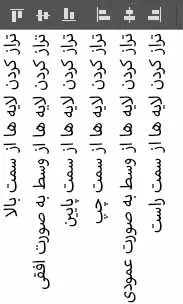 تراز کردن لایه ها از سمت بالا
تراز کردن لایه ها از وسط به صورت افقی
تراز کردن لایه ها از سمت پایین
تراز کردن لایه ها از سمت چپ
تراز کردن لایه ها از وسط به صورت عمودی
تراز کردن لایه ها از سمت راست